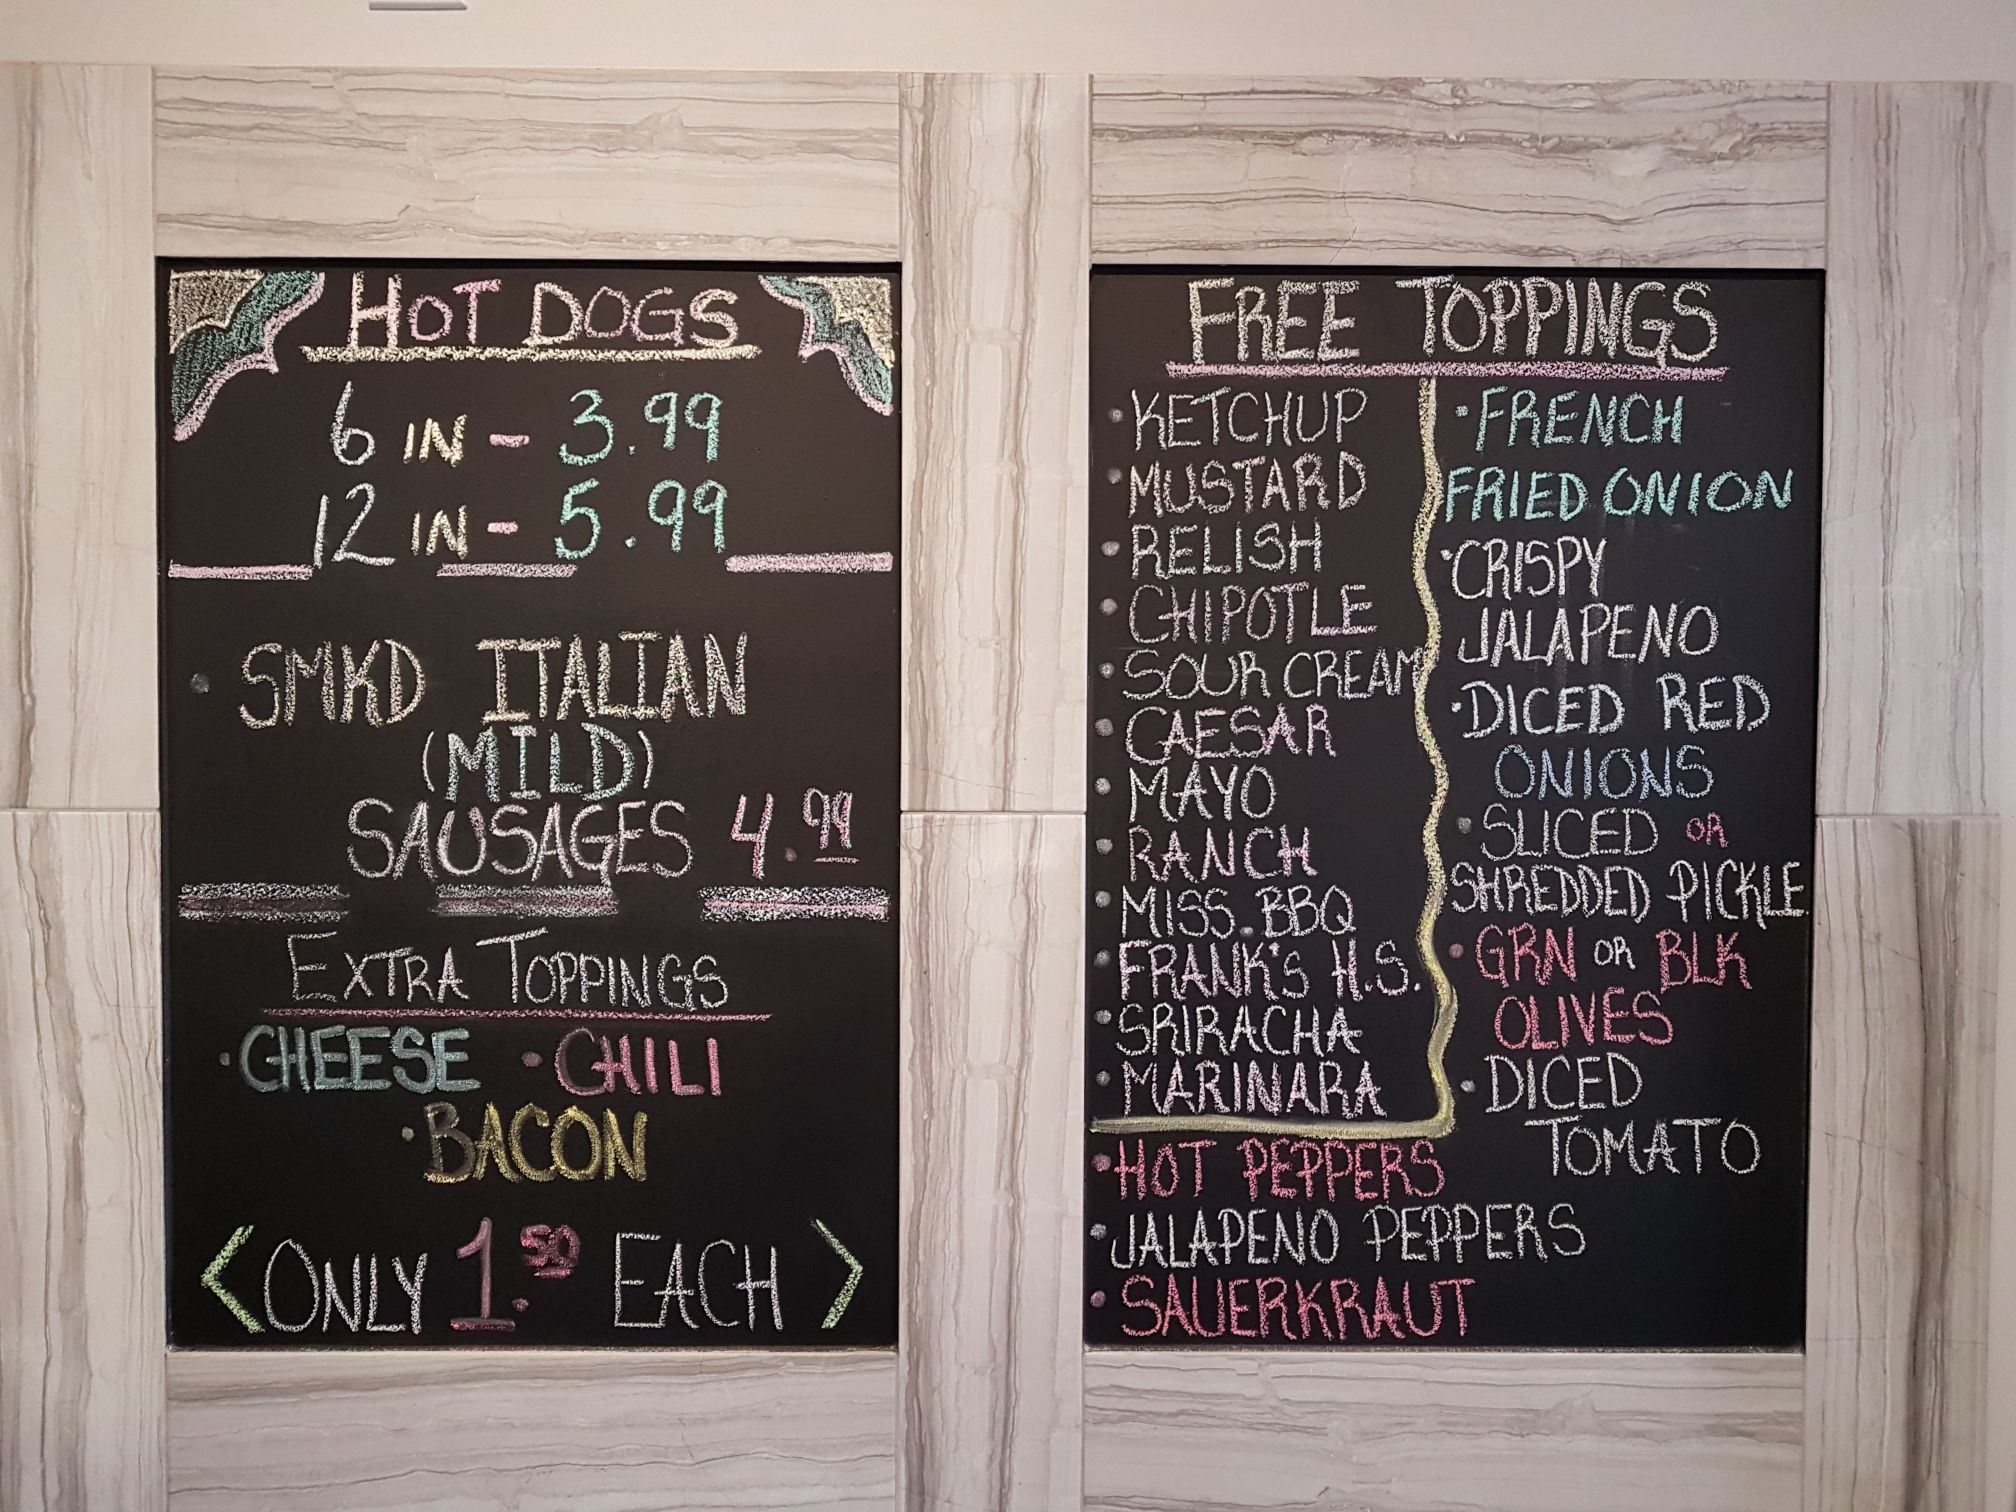 HOT DOGS
6 IN - 3.99
12 IN - 5.99
• SMKD ITALIAN
(MILD)
SAUSAGES 4.99
EXTRA TOPPINGS
• CHEESE • CHILI
• BACON
<ONLY 1.50 EACH>
FREE TOPPINGS
• KETCHUP
• MUSTARD
• RELISH
• CHIPOTLE
• SOUR CREAM
• CAESAR
• MAYO
• RANCH
• MISS. BBQ
• FRANK'S H.S.
• SRIRACHA
• MARINARA
• HOT PEPPERS
• JALAPENO PEPPERS
• SAUERKRAUT
• FRENCH
FRIED ONION
• CRISPY
JALAPENO
• DICED RED
ONIONS
• SLICED OR
SHREDDED PICKLE
• GRN OR BLK
OLIVES
• DICED
TOMATO